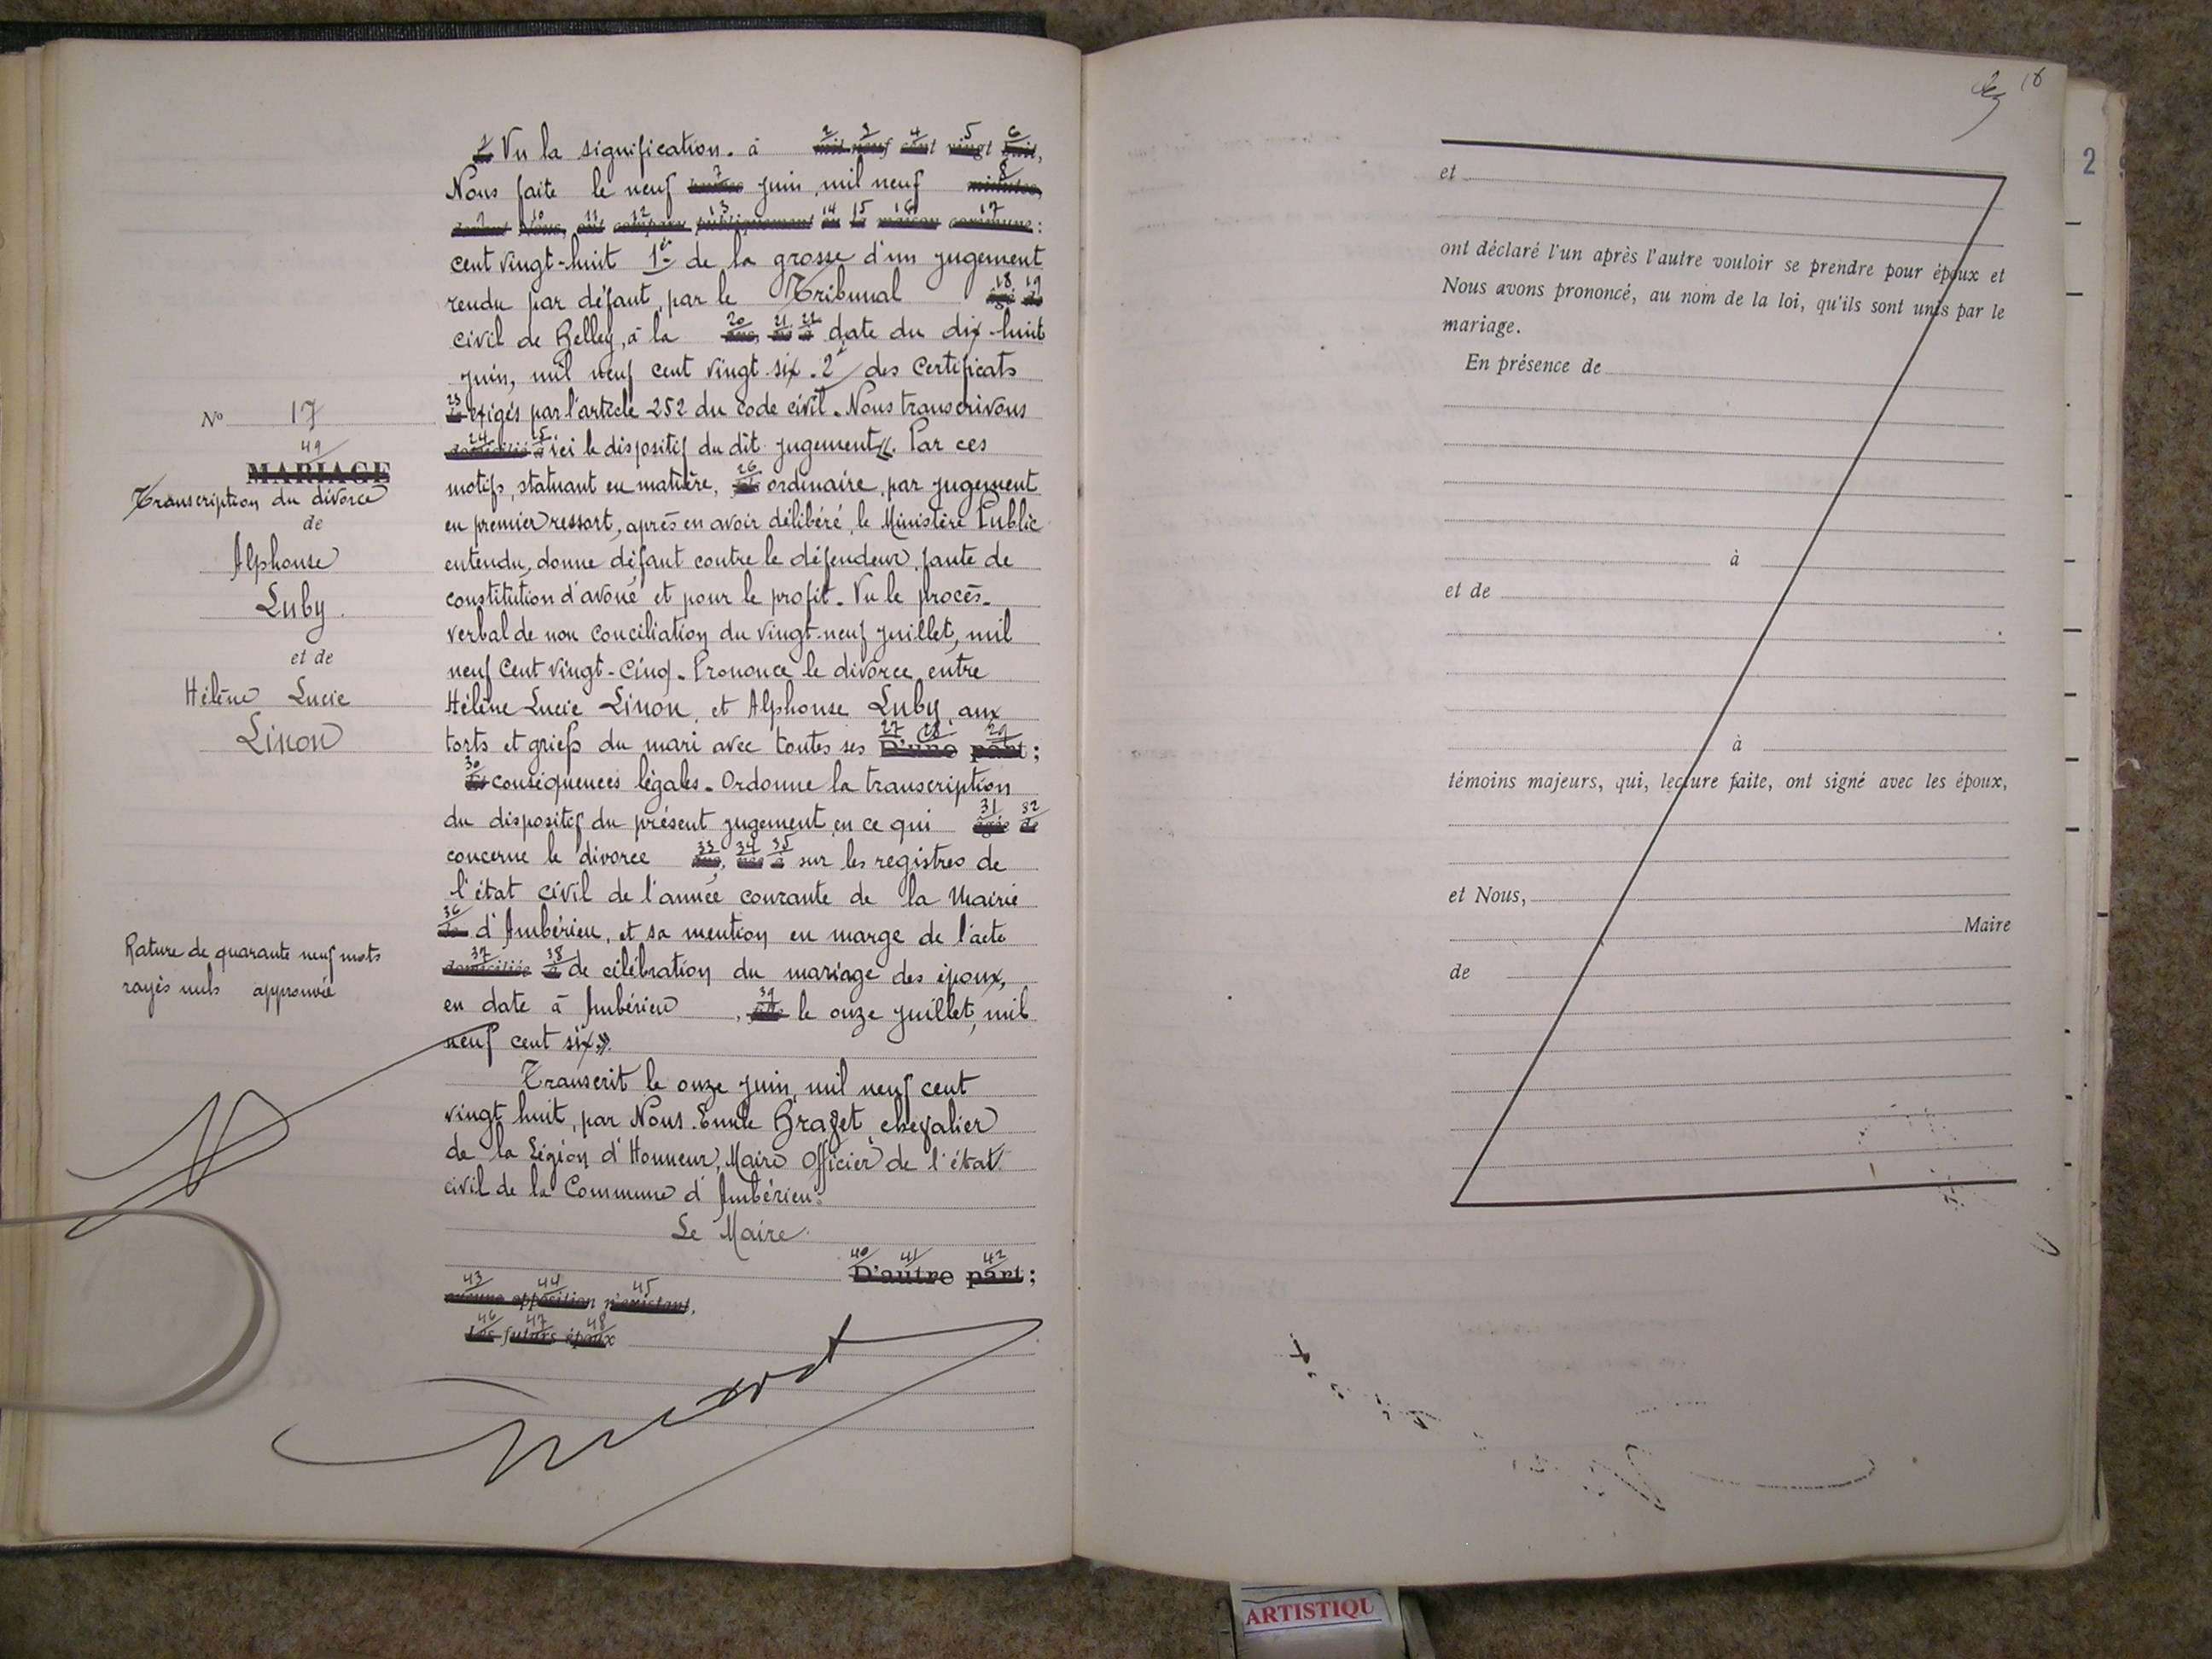 Vu la signification. à mil neuf cent vingt huit,
Nous faite le neuf heures juin, mil neuf minutes,
devant Nous, ont comparu publiquement en la maison commune :
cent vingt-huit 1º de la grosse d'un jugement
rendu par défaut, par le Tribunal âgé de
civil de Belley, à la ans, né à date du dix-huit
juin, mil neuf cent vingt-six. 2º des Certificats
exigés par l'article 252 du code civil. Nous transcrivons
domicilié à ici le dispositif du dit jugement «. Par ces
motifs, statuant en matière, ordinaire, par jugement
en premier ressort, après en avoir délibéré, le Ministère Public
entendu, donne défaut contre le défendeur, faute de
constitution d'avoué et pour le profit. Vu le procès-
verbal de non conciliation du vingt-neuf juillet, mil
neuf cent vingt-cinq. Prononce le divorce entre
Hélène Lucie Linon, et Alphonse Luby, aux
torts et griefs du mari avec toutes ses D'une part ;
conséquences légales. Ordonne la transcription
du dispositif du présent jugement en ce qui âgée de
concerne le divorce ans, née à sur les registres de
l'état civil de l'année courante de la Mairie
d'Ambérieu, et sa mention en marge de l'acte
domiciliée à de célébration du mariage des époux,
en date à Ambérieu, le onze juillet, mil
neuf cent six.».
Transcrit le onze juin, mil neuf cent
vingt huit, par Nous. Emile Brazet chevalier
de la Légion d'Honneur, Maire Officier de l'état
civil de la Commune d'Ambérieu.
Le Maire
D'autre part ;
aucune opposition n'existant.
Les futurs époux
Nº 17
MARIAGE
Transcription du divorce
de
Alphonse
Luby.
et de
Hélène Lucie
Linon
Rature de quarante neuf mots
rayés nuls approuvée
18
et
ont déclaré l'un après l'autre vouloir se prendre pour époux et
Nous avons prononcé, au nom de la loi, qu'ils sont unis par le
mariage.
En présence de
à
et de
à
témoins majeurs, qui, lecture faite, ont signé avec les époux,
et Nous,
Maire
de
2
ARTISTIQU